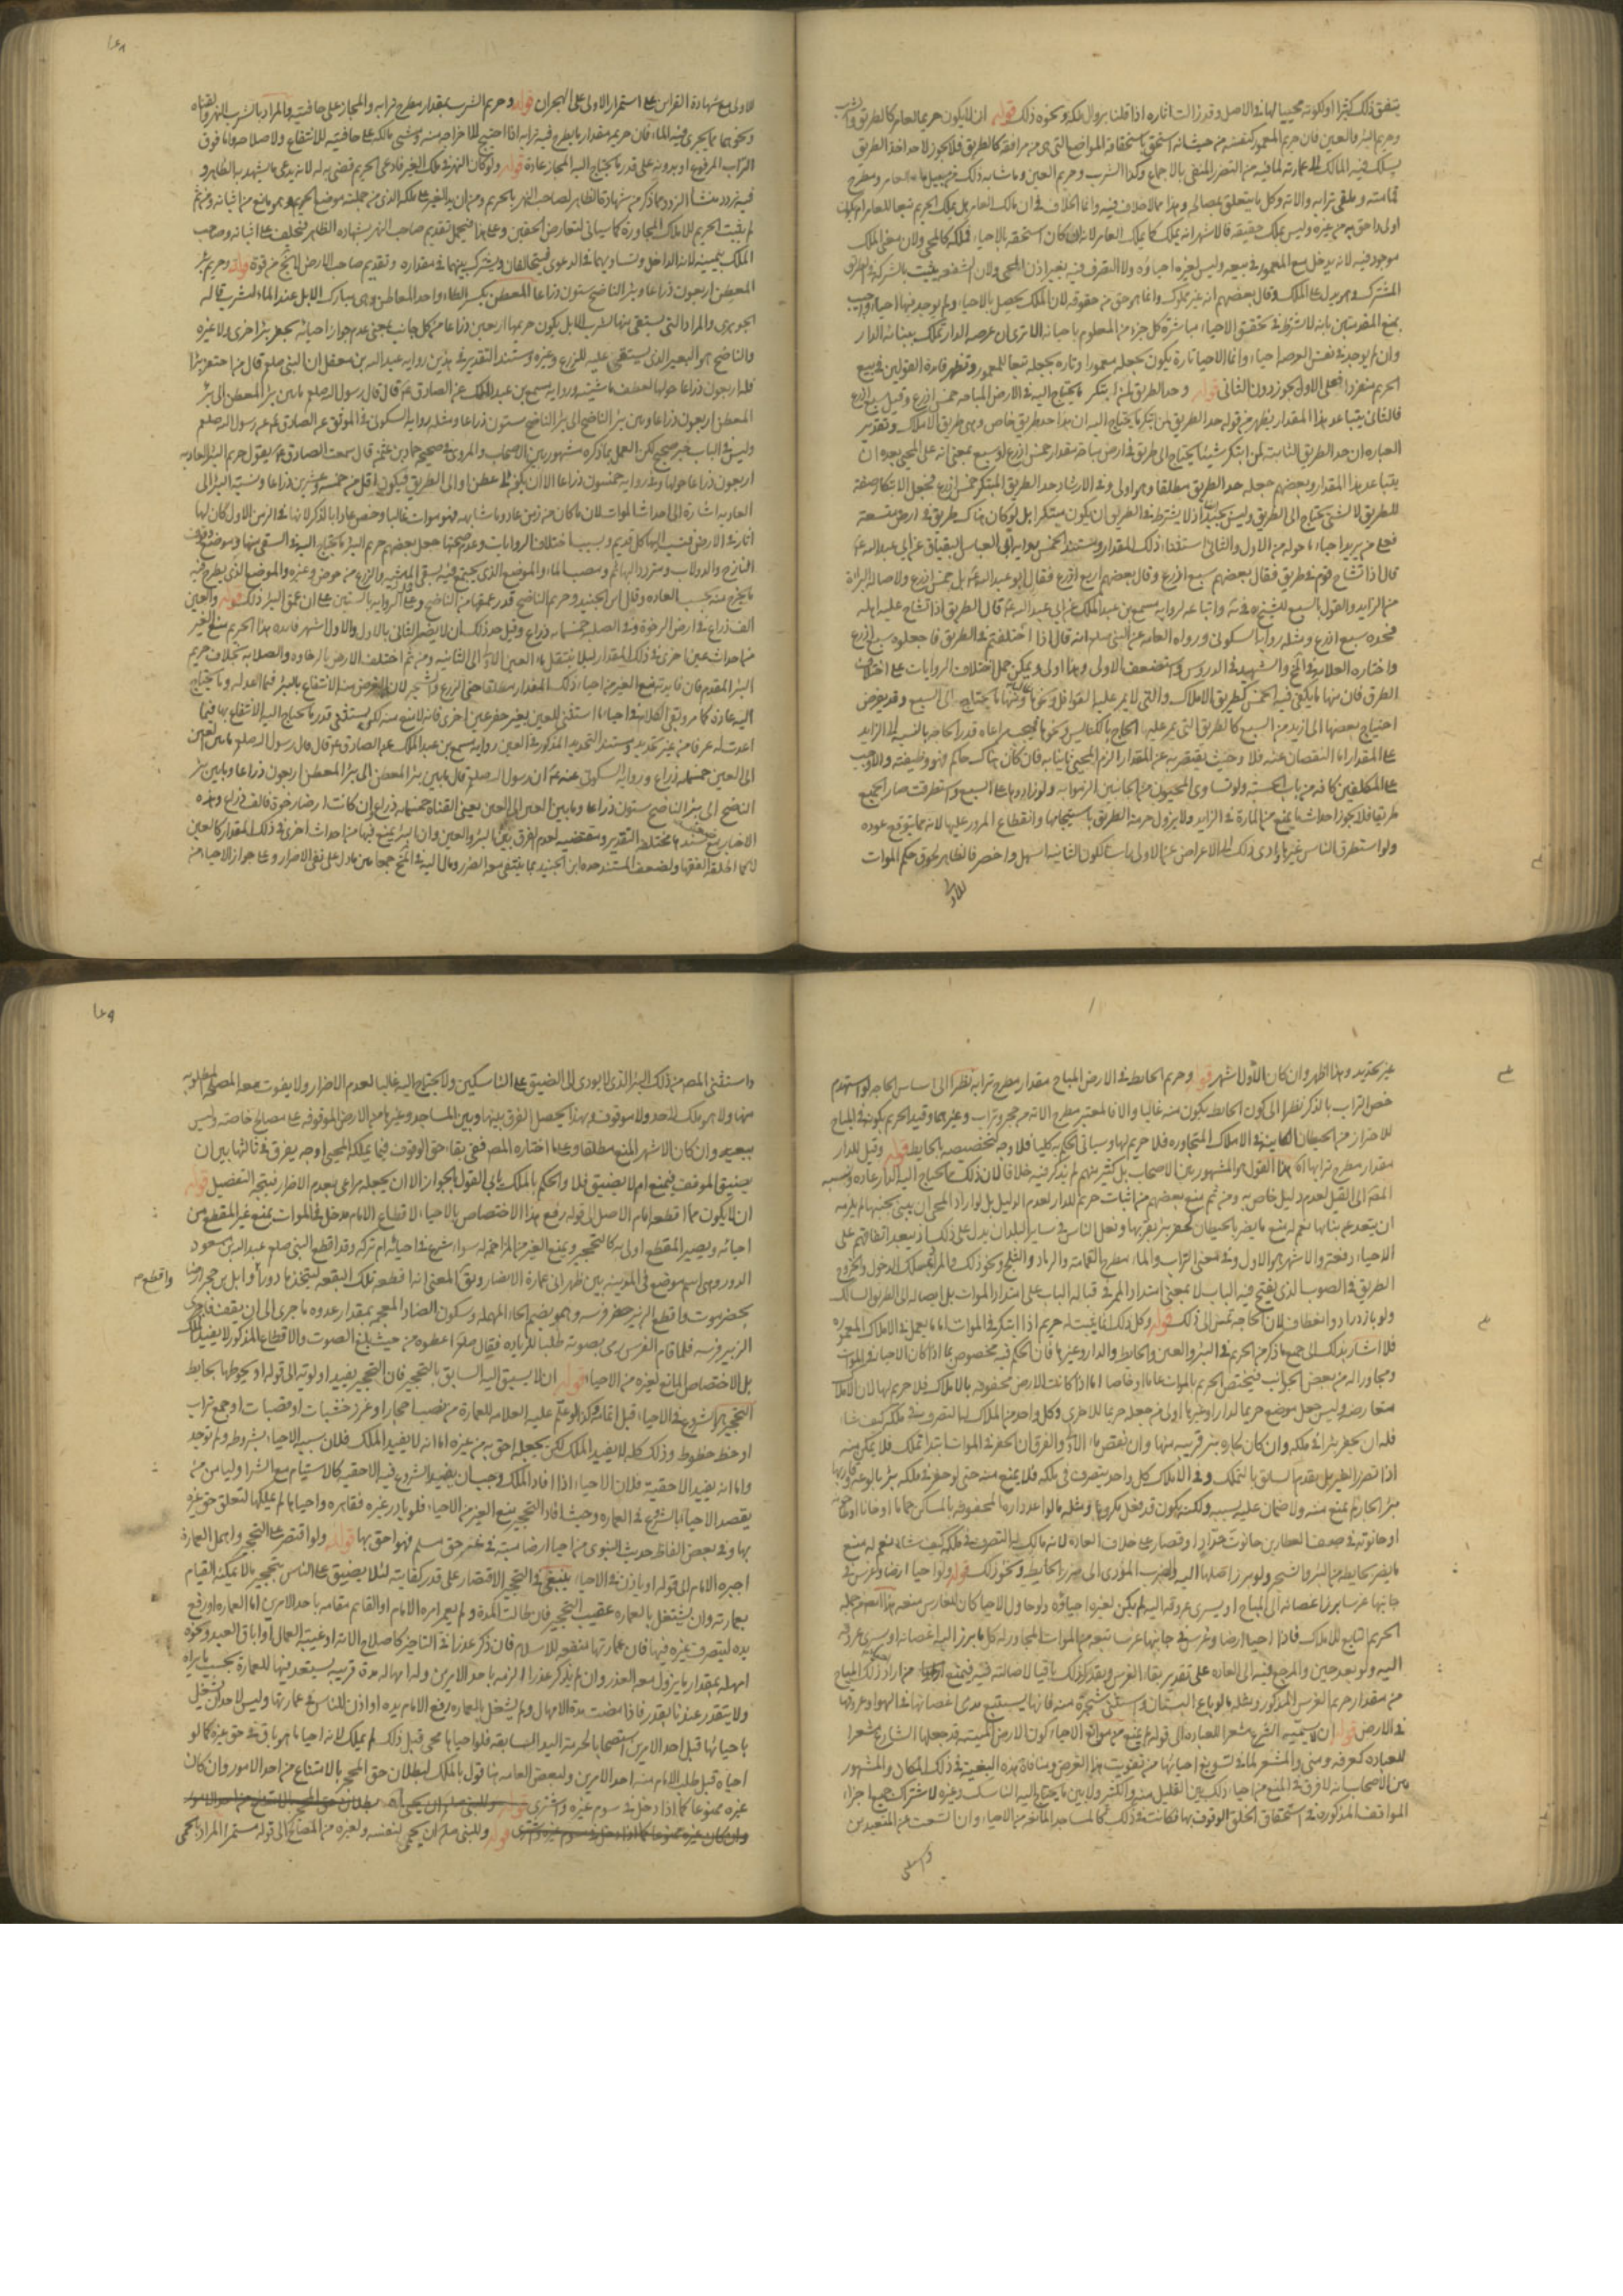 يتفق ذلك كثيرا او لكونه محييا لها في الاصل وقد زالت اثاره اذا قلنا بزوال ملكه ونحوه ذلك قوله ان لا يكون حريما لعامر كالطريق والشرب
وحريم البئر والعين فان حريم المعمور كنفسه من حيث انه استحق باستحقاقه المواضع التي هي من مرافقه كالطريق فلا يجوز لاحد اخذ الطريق
يسلك فيه المالك الى عمارته لما فيه من التضرر المنفي بالاجماع وكذا الشرب وحريم العين وما شابه ذلك ومطرح
قمامته وملقى ترابه والاته وكل ما يتعلق بمصالحه وهذا مما لا خلاف فيه وانما الخلاف في ان مالك العامر هل يملك الحريم تبعا للعامر او يكون
اولى واحق به من غيره وليس يملك حقيقه فالاشهر انه يملك كما يملك العامر لانه مكان استحقه بالاحياء فملكه كالمحيى ولان معنى الملك
موجود فيه لانه يدخل مع المعمور في بيعه وليس لغيره احياؤه ولا التصرف فيه بغير اذن المحيي ولان الشفعه تثبت بالشركة في الطريق
المشترك وهو يدل على الملك وقال بعضهم انه غير مملوك وانما هو حق من حقوقه لان الملك يحصل بالاحياء ولم يوجد فيها احياء واجيب
بمنع المقدمتين بانه لا يشترط في تحقق الاحياء مباشرة كل جزء من المعلوم باحيائه الا ترى ان عرصه الدار تملك ببناء الدار
وان لم يوجد في نفس العرصه احياء وانما الاحيا تارة يكون بجعله معمورا وتاره بجعله تبعا للمعمور وتظهر فائدة القولين في بيع
الحريم منفردا فعلى الاول يجوز دون الثاني قوله وحد الطريق لمن ابتكر ما يحتاج اليه في الارض المباحه خمس اذرع وقيل سبع اذرع
فالثاني يتباعد هذا المقدار يظهر من قوله حد الطريق لمن ابتكر ما يحتاج اليه ان هذا حد طريق خاص وهي طريق الاملاك وتقدير
العباره ان حد الطريق الثابت لمن ابتكر شيئا يحتاج الى طريق في ارض مباحه مقدار خمس اذرع او سبع بمعنى انه على المحيي بعده ان
يتباعد هذا المقدار وبعضهم جعله حد الطريق مطلقا وهو اولى وفي الارشاد حد الطريق المبتكر خمس اذرع فجعل الابتكار صفة
للطريق لا لشي يحتاج الى الطريق وليس بجيد اذ لا يشترط في الطريق ان يكون مبتكرا بل لو كان هناك طريق في ارض متسعة
فجاء من يريد احياء ما حوله من الاول والثاني استفيدا ذلك المقدار ومستند الخمس رواية ابي العباس البقباق عن ابي عبد الله ع
قال اذا تشاح قوم في طريق فقال بعضهم سبع اذرع وقال بعضهم اربع اذرع فقال ابو عبد الله ع لا بل خمس اذرع ولاصالة البراة
من الزايد والقول بالسبع للشيخ في ية واتباعه لرواية مسمع بن عبد الملك عن ابي عبد الله ع قال الطريق اذا تشاح عليه اهله
فحده سبع اذرع ومثله رواية السكوني ورواه العامه عن النبي صلم انه قال اذا اختلفتم في الطريق فاجعلوه سبع اذرع
واختاره العلامة في المخ والشهيد في الدروس واستضعف الاولى وهذا اولى ويمكن حمل اختلاف الروايات على اختلاف
الطرق فان منها ما يكفي فيه الخمس كطريق الاملاك والتي لا يمر عليها القوافل ونحوها ومنها ما يحتاج الى السبع وقد يعرض
احتياج بعضها الى ازيد من السبع كالطريق التي يمر عليها الحاج بالكنايس ونحوها فيجب مراعاه قدر الحاجة بالنسبة الى الزايد
على المقدار اما النقصان عنه فلا وحيث يقتصر به عن المقدار الزم المحيي ثانيا به فان كان هناك حاكم فهو وظيفته والا وجب
على المكلفين كافه من باب الحسبه ولو تساوى المحييون من الجانبين الزموا به ولو زادوها على السبع واستطرقت صار الجميع
طريقا فلا يجوز احداث ما يمنع من المارة في الزايد ولا يزول حرمة الطريق باستيجامها وانقطاع المرور عليها لانه مما يتوقع عوده
ولو استطرق الناس غيرها وادى ذلك الى الاعراض عن الاولى راسا لكون الثانيه اسهل واخصر فالظاهر لحوق حكم الموات
للاولى
للاولى مع شهادة القراين على استمرار الاولى على الهجران قوله وحريم الشرب بمقدار مطرح ترابه والمجاز على حافتيه والمراد بالشرب النهر والقناه
ونحوهما مما يجري فيه الماء فان حريمه مقدار ما يطرح فيه ترابه اذا احتيج للاخراجه منه ومشي مالكه على حافتيه للانتفاع ولاصلاحه ولو فوق
التراب المرفوع او بدونه على قدر ما يحتاج اليه المجاز عادة قوله ولو كان النهر في ملك الغير فادعى الحريم قضي به له لانه يدعي ما يشهد به الظاهر و
فيه تردد منشأ التردد مما ذكر من شهادة الظاهر لصاحب النهر بالحريم ومن ان يد الغير على ملكه الذي من جملته موضع الحريم وهو مانع من اثباته ومن ثم
لم يثبت الحريم للاملاك المجاورة كما سياتي لتعارض الحقين وعلى هذا فيحتمل تقديم صاحب النهر بشهادة الظاهر فيحلف على اثباته وصاحب
الملك بيمينه لانه الداخل وتساويهما في الدعوى فيتحالفان ويشترك بينهما في مقداره وتقديم صاحب الارض لا يخ من قوة قوله وحريم بئر
المعطن اربعون ذراعا وبئر الناضح ستون ذراعا المعطن بكسر الطاء واحد المعاطن وهي مبارك الابل عند الماء لتشرب قاله
الجوهري والمراد التي يستقى منها لشرب الابل يكون حريمها اربعين ذراعا من كل جانب بمعنى عدم جواز احيائه بجعل بئر اخرى ولا غيره
والناضح هو البعير الذي يستقى عليه للزرع وغيره ومستند التقدير في هذين رواية عبد الله بن مغفل ان النبي صلع قال من احتفر بئرا
فله اربعون ذراعا حولها لعطن ماشيته ورواية مسمع بن عبد الملك عن الصادق ع قال قال رسول الله صلع ما بين بئر المعطن الى بئر
المعطن اربعون ذراعا وبين بئر الناضح الى بئر الناضح ستون ذراعا ومثله رواية السكوني في الموثق عن الصادق ع عن رسول الله صلع
وليس في الباب خبر صحيح لكن العمل بما ذكره مشهور بين الاصحاب والمروي في صحيحة حماد بن عثمن قال سمعت الصادق ع يقول حريم البئر العاديه
اربعون ذراعا حولها وفي رواية خمسون ذراعا الا ان يكون الى عطن او الى الطريق فيكون اقل من خمسة وعشرين ذراعا ونسبة البئر الى
العاديه اشارة الى احداث الموات لان ما كان من زمن عاد وما شابهه فهو موات غالبا وخص عادا بالذكر لانها في الزمن الاول كان لها
اثار في الارض فنسب اليها كل قديم وبسبب اختلاف الروايات وعدم صحتها جعل بعضهم حريم البئر ما يحتاج اليه في السقي منها وموضع وقوف
النازح والدولاب ومتردد البهائم ومصب الماء والموضع الذي يجتمع فيه لسقي الماشيه والزرع من حوض وغيره والموضع الذي يطرح فيه
ما يخرج منه بحسب العاده وقال ابن الجنيد وحريم الناضح قدر عمقها من الناضح وحمل الرواية بالستين على ان عمق البئر ذلك قوله والعين
الف ذراع في ارض الرخوة وفي الصلبه خمسمائة ذراع وقيل حد ذلك ان لا يضر الثاني بالاول والاول اشهر فائده هذا الحريم منع الغير
من احداث عين اخرى في ذلك المقدار ليلا ينتقل ماء العين الاولى الى الثانيه ومن ثم اختلف الارض بالرخاوه والصلابه بخلاف حريم
البئر المقدم فان فايدته منع الغير من احياء ذلك المقدار مطلقا حتى الزرع والشجر لان الغرض منه الانتفاع بالبئر فيما اعد له وما يحتاج
اليه عادة كما مر وبقي الكلام في احياء ما استثني للعين بغير حفر عين اخرى فانه لا منع منه لكن يستثنى قدر ما يحتاج اليه الانتفاع بها فيما
اعدت له عرفا من غير تحديد ومستند التحديد المذكور في العين رواية مسمع بن عبد الملك عن الصادق ع قال قال رسول الله صلع ما بين العين
الى العين خمسمائة ذراع ورواية السكوني عنه ع ان رسول الله صلع قال ما بين بئر المعطن الى بئر المعطن اربعون ذراعا وما بين بئر
الناضح الى بئر الناضح ستون ذراعا وما بين العين الى العين يعني القناه خمسمائة ذراع وان كانت ارضا رخوة فالف ذراع وهذه
الاخبار مع ضعف سندها مختلفة التقدير ومقتضيه لعدم الفرق بين البئر والعين وان البئر يمنع فيها من احداث اخرى في ذلك المقدار كالعين
لانما اطلقه الفقهاء ولضعف المستند حده ابن الجنيد بما ينتفي معه الضرر ومال اليه في المخ جمعا بين ما دل على نفي الاضرار وعلى جواز الاحياء من
غير تحديد وهذا اظهر وان كان الاول اشهر قوله وحريم الحايط في الارض المباح مقدار مطرح ترابه نظرا الى امساس الحاجه لو استهدم
خص التراب بالذكر نظرا الى كون الحايط يكون منه غالبا والا فالمعتبر مطرح الاته من حجر وتراب وغيرهما وقيد الحريم بكونه في المباح
للاحتراز من الحيطان الكاينة في الاملاك المتجاوره فلا حريم لها وسياتي الحكم به كليا فلا وجه لتخصيصه بالحايط قوله وقيل للدار
مقدار مطرح ترابها هذا القول هو المشهور بين الاصحاب بل كثير منهم لم يذكر فيه خلافا لان ذلك مما يحتاج اليه الدار عاده ونسبه
المص الى القيل لعدم دليل خاص به ومن ثم منع بعضهم من اثبات حريم للدار لعدم الدليل بل لو اراد المحيي ان يبني بجنبها لم يلزمه
ان يتعدى عن بنائها نعم له منع ما يضر بالحيطان كحفر بئر بقربها وفعل الناس في ساير البلدان يدل على ذلك اذ يبعد اتفاقهم على
الاحياء دفعة والاشهر هو الاول وفي معنى التراب والماء مطرح القمامة والرماد والثلج ونحو ذلك والمراد مسلك الدخول والخروج
الطريق في الصوب الذي يفتح فيه الباب لا بمعنى امتداد الممر في قبالة الباب على امتداد الموات بل ايصاله الى الطريق السالك
ولو بازدياد وانعطاف لان الحاجة تمس الى ذلك قوله وكل ذلك انما يثبت له حريم اذا ابتكر في الموات اما ما يعمل في الاملاك المعموره
فلا اشار بذلك الى جمع ما ذكر من الحريم في البئر والعين والحايط والدار وغيرها فان الحكم فيه مخصوص بما اذا كان الاحياء في الموات
ومجاورا له من بعض الجوانب فيختص الحريم بالموات عاما او خاصا اما اذا كانت الارض محفوفه بالاملاك فلا حريم لها لان الاملاك
متعارضه وليس جعل موضع حريما لدار او غيرها اولى من جعله حريما للاخرى وكل واحد من الملاك له التصرف في ملكه كيف شاء
فله ان يحفر بئرا في ملكه وان كان لجاره بئر قريبه منها وان نقص ماء الاولى والفرق ان الحفر في الموات ابتداء تملك فلا يمكن منه
اذا تضرر الغير بل يقدم السابق بالتملك وفي الاملاك كل واحد يتصرف في ملكه فلا يمنع منه حتى لو حفر في ملكه بئر بالوعة وفسد بها
بئر الجار لم يمنع منه ولا ضمان عليه بسببه ولكن يكون قد فعل مكروها ومثله ما لو اعد داره المحفوفه بالمساكن حماما او خانا او طاحونه
او حانوته في صف العطارين حانوت حداد او قصار على خلاف العاده لانه مالك له التصرف في ملكه كيف شاء نعم له منع
ما يضر بحايطه من البئر والشجر ولو برز اصلها اليه والضرب المؤدي الى ضرر الحايط ونحو ذلك قوله ولو احيا ارضا وغرس في
جانبها غرسا برز اغصانه الى المباح او يسرى عروقه اليه لم يكن لغيره احياؤه ولو حاول الاحياء كان للغارس منعه هذا ايضا من جملة
الحريم التابع للاملاك فاذا احيا ارضا وغرس في جانبها غرسا تبعه من الموات المجاور له كل ما يبرز اليه اغصانه او يسرى عروقه
اليه ولو بعد حين والمرجع فيه الى العاده على تقدير بقاء الغرس ويقدر كذلك باقيا لاصالته فيه فيمنع من اراد ذلك المباح
من مقدار حريم الغرس المذكور ومثله ما لو باع البستان واستثنى شجرة منه فانها يستتبع مدى اغصانها في الهواء وعروقها
في الارض قوله ان لا يسميه الشرع مشعرا للعباده الى قوله لم يمنع من موانع الاحياء كون الارض الميتة قد جعلها الشارع مشعرا
للعباده كعرفه ومنى والمشعر لما في تسويغ احيائها من تفويت هذا الغرض ومنافاة هذه البغية في ذلك المكان والمشهور
بين الاصحاب انه لا فرق في المنع من احياء ذلك بين القليل منه والكثير ولا بين ما يحتاج اليه الناسك وغيره لاشتراك جميع اجزاء
المواقف المذكوره في استحقاق الخلق الوقوف بها فكانت في ذلك كالمساجد المانعه من الاحياء وان اتسعت عن المتعبدين
واستثنى المص من ذلك اليسير الذي لا يودي الى الضيق على الناسكين ولا يحتاج اليه غالبا لعدم الاضرار ولا يفوت معه المصلحه المطلوبه
منها ولا هو ملك لاحد ولا موقوف وبهذا يحصل الفرق بينها وبين المساجد وغيرها من الارض الموقوفه على مصالح خاصه وليس
ببعيد وان كان الاشهر المنع مطلقا وعلى ما اختاره المص ففي بقاء حق الوقوف فيما يملكه المحيي اوجه يفرق في ثالثها بين ان
يضيق الموقف فيمنع ام لا يضيق فلا والحكم بالملك يابى القول بالجواز الا ان يجعله مراعى بعدم الاضرار فيتجه التفصيل قوله
ان لا يكون مما اقطعه امام الاصل الى قوله رفع هذا الاختصاص بالاحياء الاقطاع الامام مدخل في الموات يمنع غير المقطع من
احيائه ويصير المقطع اولى به كالتحجير ويمنع الغير من المزاحم له سواء شرع في احيائه ام تركه وقد اقطع النبي صلع عبد الله بن مسعود
الدور وهي اسم موضع في المدينه بين ظهراني عمارة الانصار ويقال المعنى انه اقطعه تلك البقعه ليتخذها دورا وابل بن حجر ارضا
واقطع م
بحضرموت واقطع الزبير حضر فرسه وهو بضم الحاء المهمله وسكون الضاد المعجمه بمقدار عدوه ما جرى الى ان يقف فاجرى
الزبير فرسه فلما قام الفرس رمى بصوته طلبا للزياده فقال صلم اعطوه من حيث بلغ الصوت والاقطاع المذكور لا يفيد الملك
بل الاختصاص المانع لغيره من الاحياء قوله ان لا يسبق اليه السابق بالتحجير فان التحجير يفيد اولويه الى قوله او يحوطها بحايط
التحجير هو الشروع في الاحياء قبل اتمامه وكذا لو علم عليه العلامه للعمارة من نصب احجار او غرز خشبات او قصبات او جمع تراب
او خط خطوط وذلك كله لا يفيد الملك لكن يجعله احق به من غيره اما انه لا يفيد الملك فلان سببه الاحياء بشروط ولم توجد
واما انه يفيد الاحقية فلان الاحياء اذا افاد الملك وجب ان يفيد الشروع فيه الاحقيه كالاستيام مع الشرا وليامن من
يقصد الاحياء بالشروع في العماره وحيث افاد التحجير منع الغير من الاحياء فلو بادر غيره فقاهره واحياها لم يملكها لتعلق حق غيره
بها وفي بعض الفاظ حديث النبوي من احيا ارضا ميتة في غير حق مسلم فهو احق بها قوله ولو اقتصر على التحجير واهمل العمارة
اجبره الامام الى قوله او باذن في الاحياء ينبغي في التحجير الاقتصار على قدر كفايته لئلا يضيق على الناس بتحجير ما لا يمكنه القيام
بعمارته وان يشتغل بالعماره عقيب التحجير فان طالت المدة ولم يعمر امره الامام او القايم مقامه باحد الامرين اما العماره او رفع
يده ليتصرف غيره فيها فان عمارتها منفعه للاسلام فان ذكر عذرا في التاخير كاصلاح الاته او غيبة العمال او اباق العبد ونحوه
امهله بمقدار ما يزول معه العذر وان لم يذكر عذرا الزمه باحد الامرين وله امهاله مدة قريبه يستعد فيها للعمارة بحسب ما يراه
ولا يتقدر عندنا بقدر فاذا مضت مدة الامهال ولم يشتغل بالعماره رفع الامام يده او اذن للناس في عمارتها وليس لاحد ان يدخل
باحيائها قبل احد الامرين استصحابا لحرمة اليد السابقه فلو احياها محي قبل ذلك لم يملك لانه احيا ما هو باق في حق غيره كما لو
احياه قبل طلب الامام منه احد الامرين ولبعض العامه هنا قول بالملك لبطلان حق المحجر بالامتناع من احد الامور وان كان
غيره ممنوعا كما اذا دخل في سوم غيره واشترى قوله وللنبي صلم ان يحيي
وان كان غيره ممنوعا كما اذا دخل في سوم غيره واشترى قوله وللنبي صلم ان يحمي لنفسه ولغيره من المصالح الى قوله مستمر المراد بالحمى